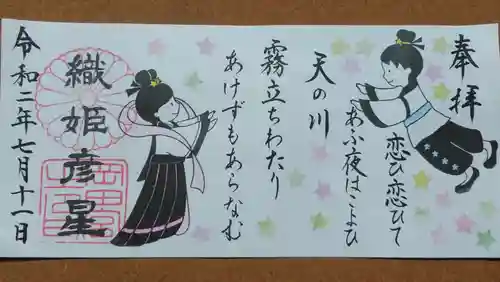 奉拝
恋ひ恋ひて
あふ夜はこよひ
天の川
霧立ちわたり
あけずもあらなむ
織姫彦星
令和二年七月十一日